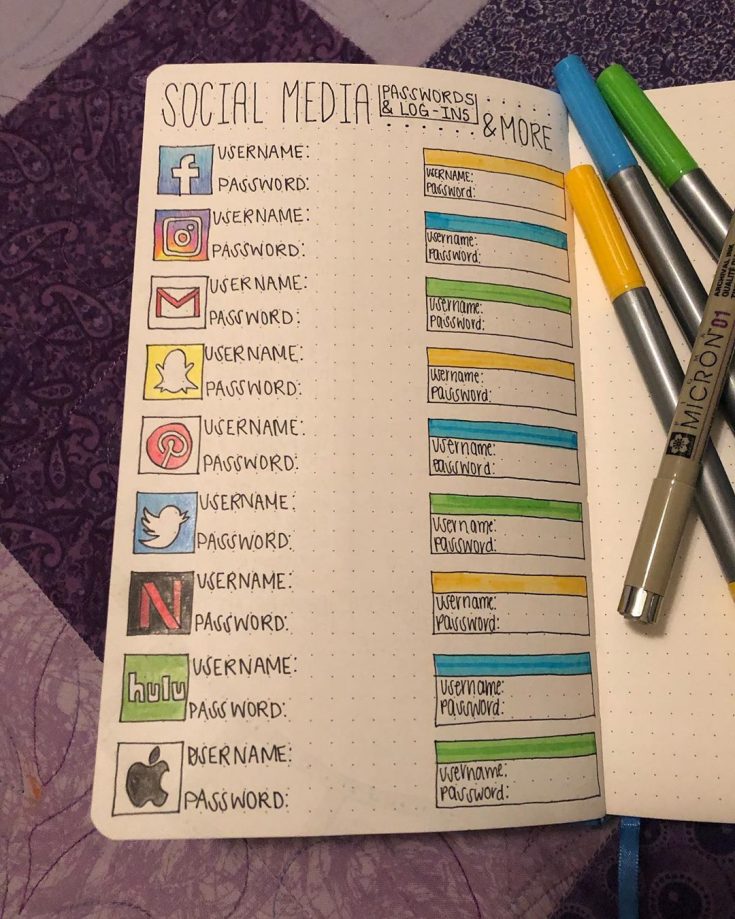 SOCIAL MEDIA
PASSWORDS
& LOG-INS
& MORE
f
USERNAME:
PASSWORD:
USERNAME:
PASSWORD:
M
USERNAME:
PASSWORD:
USERNAME:
PASSWORD:
USERNAME:
PASSWORD:
USERNAME:
PASSWORD:
N
USERNAME:
PASSWORD:
hulu
USERNAME:
PASSWORD:
USERNAME:
PASSWORD:
USERNAME:
Password:
Username:
Password:
Username:
Password:
Username:
Password:
Username:
Password:
Username:
Password:
Username:
Password:
Username:
Password:
Username:
Password:
MICRON 01
ARCHIVAL INK
QUALITE